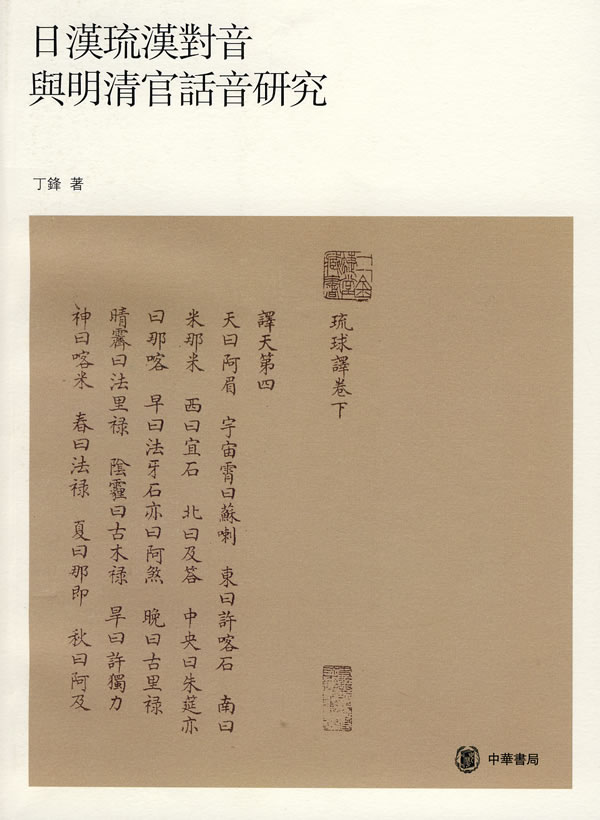 日漢琉漢對音
與明清官話音研究
丁鋒 著
琉球譯卷下
譯天第四
天曰阿眉 宇宙霄曰蘇喇 東曰許喀石 南曰
米那米 西曰宜石 北曰及答 中央曰朱筵亦
曰那喀 早曰法牙石亦曰阿煞 晚曰古里禄
晴霽曰法里禄 陰霾曰古木禄 旱曰許獨力
神曰喀米 春曰法禄 夏曰那即 秋曰阿及
中華書局